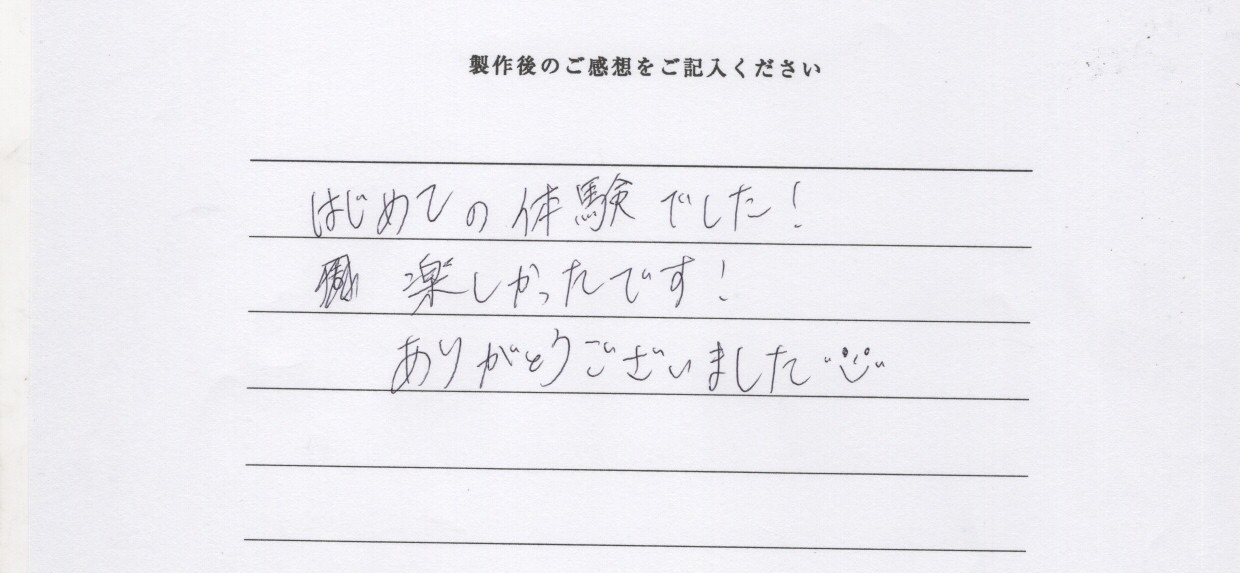 製作後のご感想をご記入ください
はじめての体験でした!
楽しかったです!
ありがとうございました